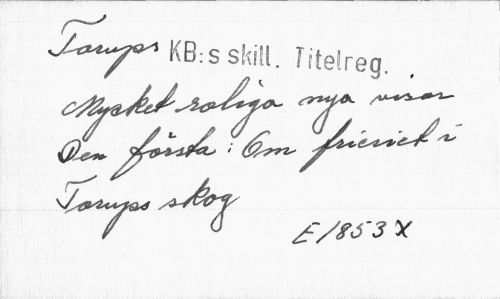 Torups KB:s skill. Titelreg.
Mycket roliga nya visor
Den första: Om frieriet i
Torups skog
E 1853 X